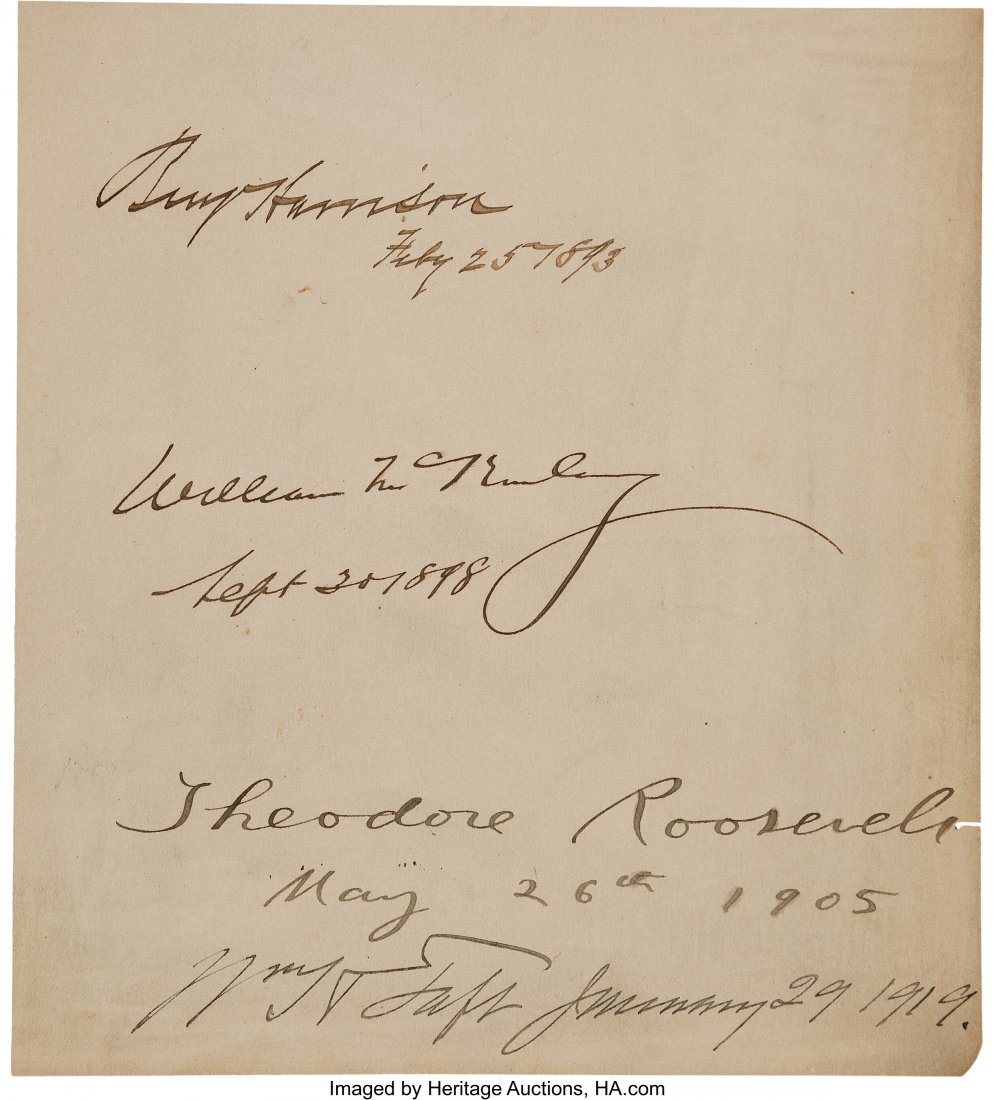 Benj Harrison
Feby 25 1893
William McKinley
Sept 30 1898
Theodore Roosevelt
May 26th 1905
Wm H Taft January 29 1919.
Imaged by Heritage Auctions, HA.com